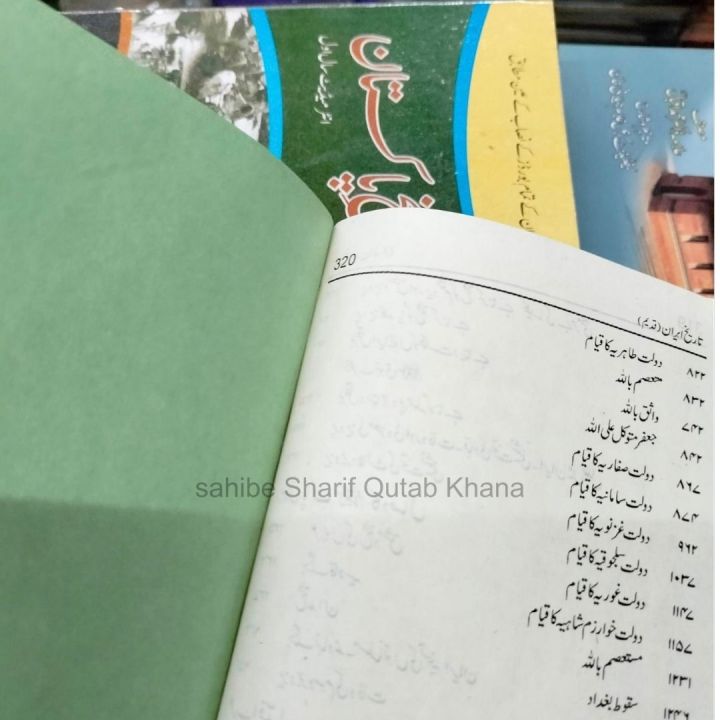 پاکستان
انٹرمیڈیٹ سال اول
کے تمام بورڈز کے نصاب کے عین مطابق
320
تاریخ ایران (قدیم)
۸۲۲ دولت طاہریہ کا قیام
۸۳۲ معتصم باللہ
۷۴۲ واثق باللہ
۸۴۲ جعفر متوکل علی اللہ
۸۶۷ دولت صفاریہ کا قیام
۸۷۴ دولت سامانیہ کا قیام
۹۶۲ دولت غزنویہ کا قیام
۱۰۳۷ دولت سلجوقیہ کا قیام
۱۱۴۷ دولت غوریہ کا قیام
۱۱۵۷ دولت خوارزم شاہیہ کا قیام
۱۲۳۱ مستعصم باللہ
۱۲۴۶ سقوط بغداد
sahibe Sharif Qutab Khana